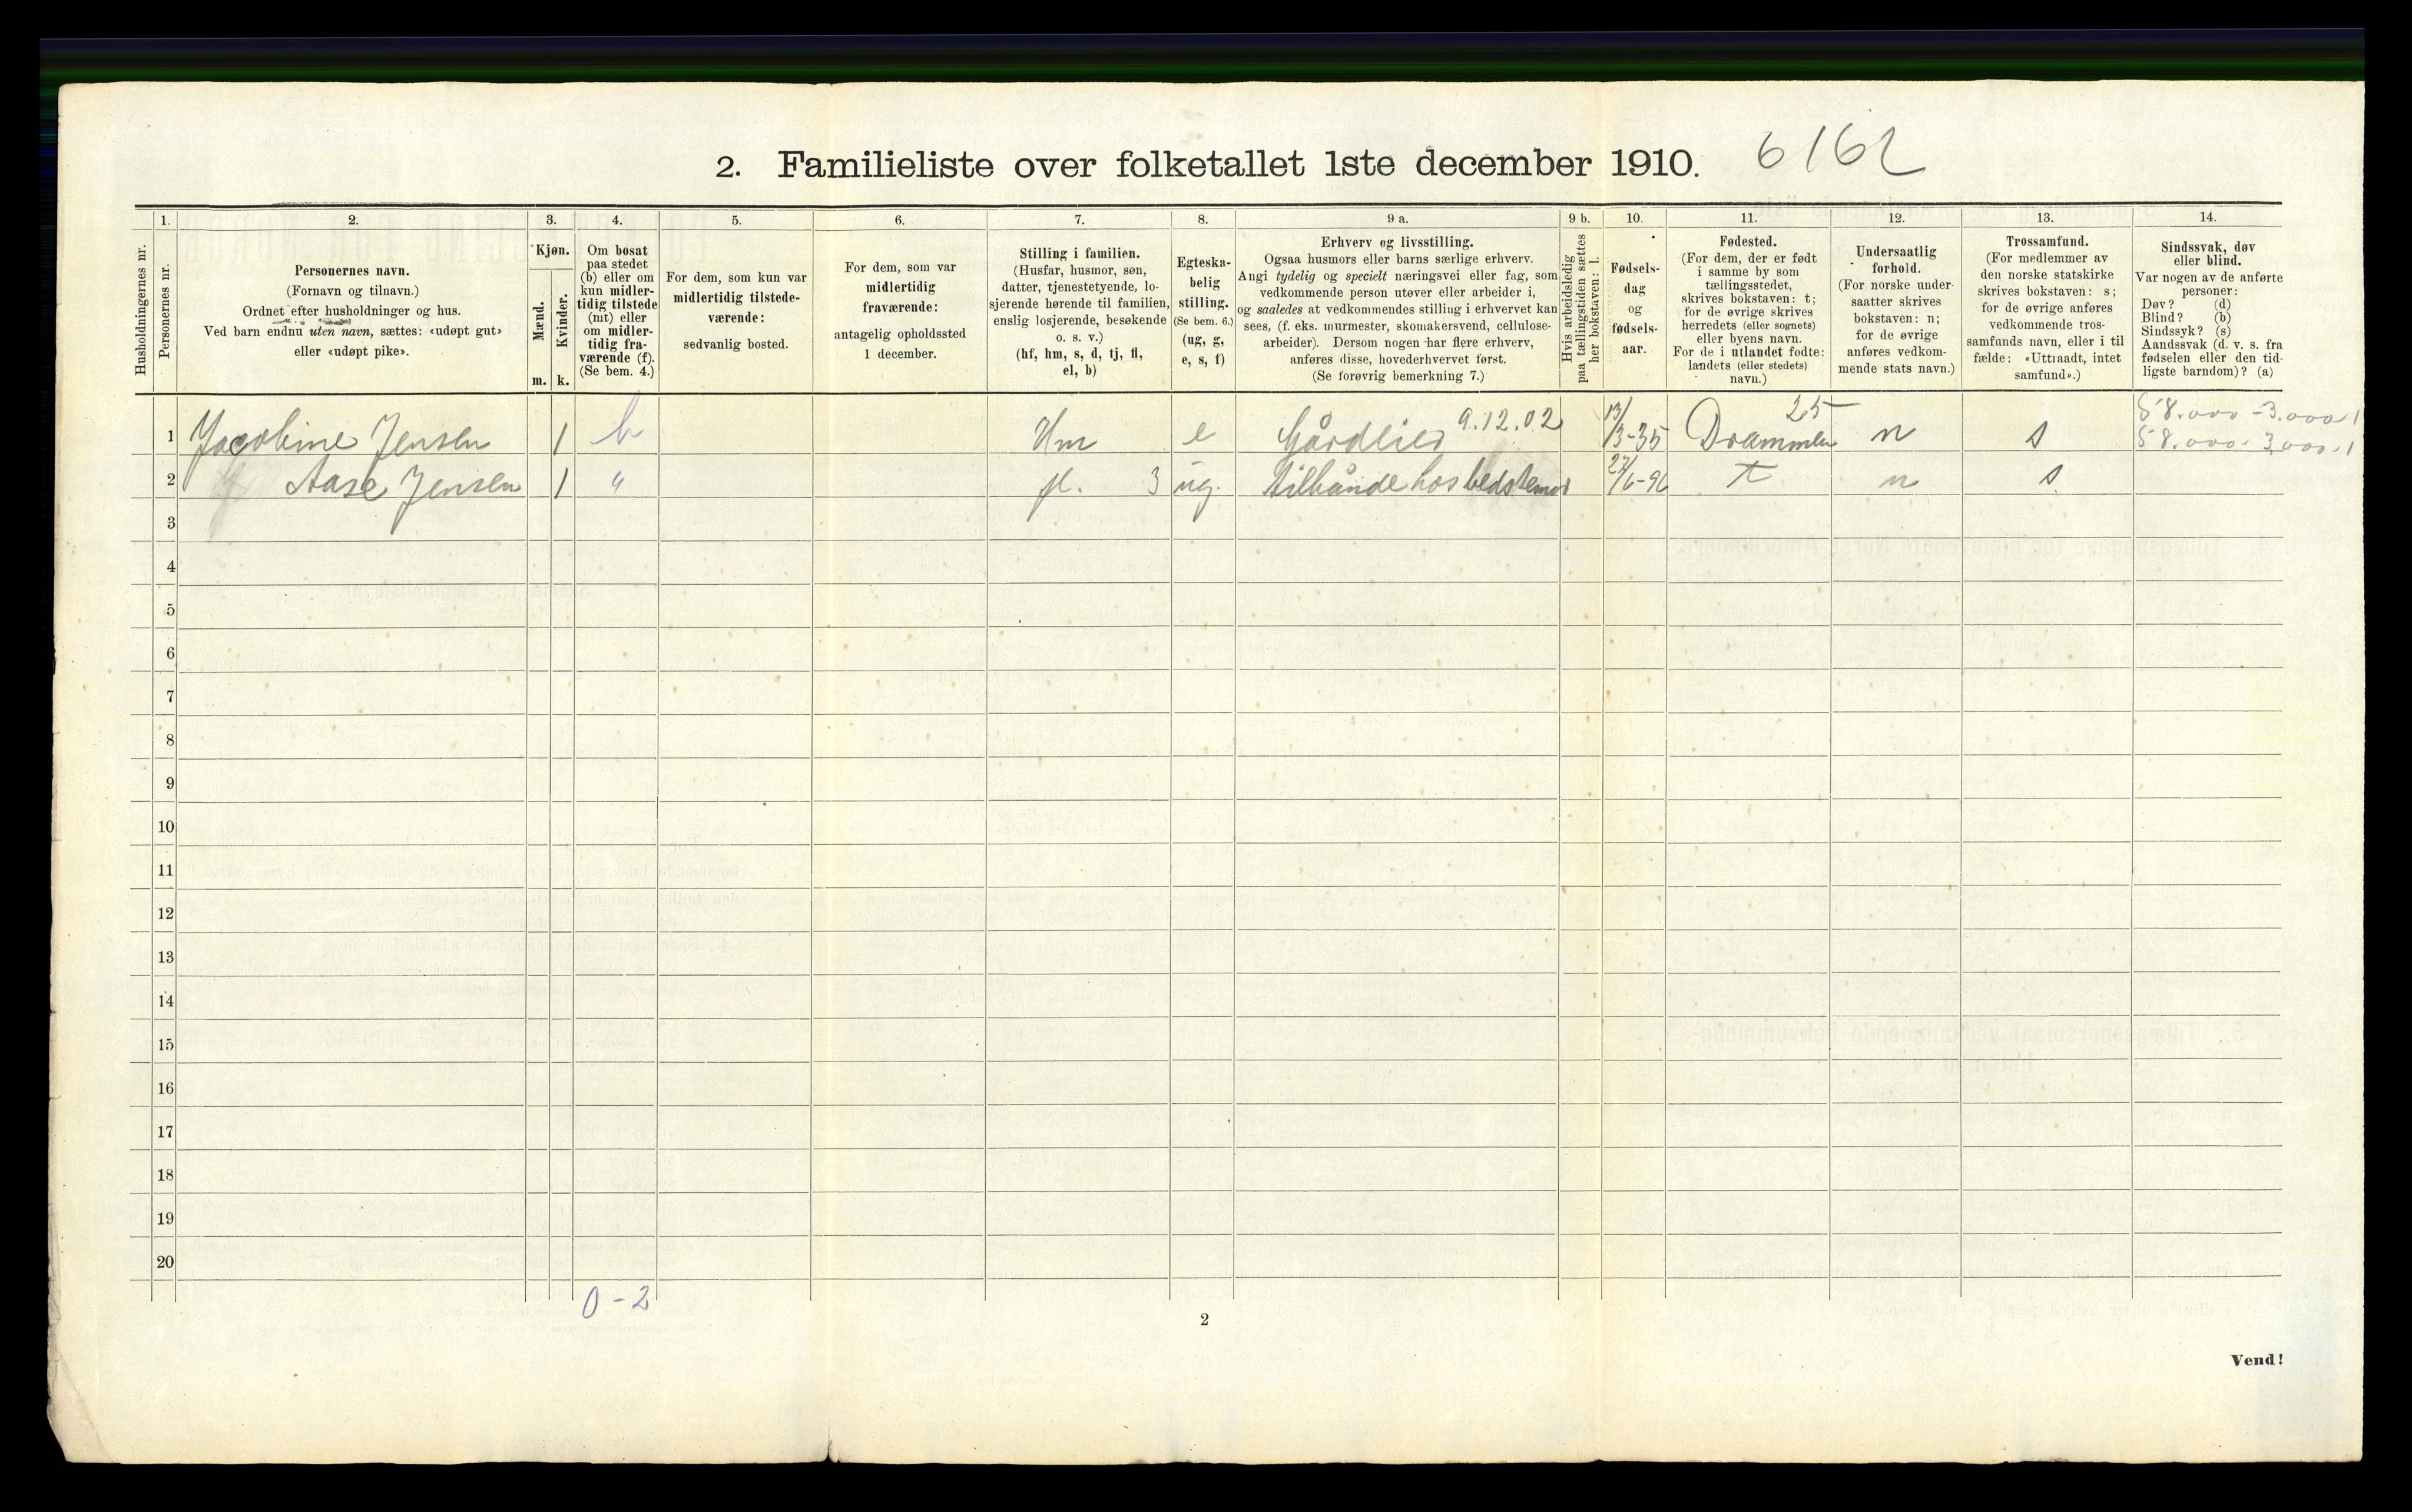 2. Familieliste over folketallet 1ste december 1910. 6162
Husholdningernes nr.
1.
Personernes nr.
2.
Personernes navn.
(Fornavn og tilnavn.)
Ordnet efter husholdninger og hus.
Ved barn endnu uten navn, sættes: «udøpt gut»
eller «udøpt pike».
3.
Kjøn.
Mænd.
Kvinder.
m. k.
4.
Om bosat
paa stedet
(b) eller om
kun midler-
tidig tilstede
(mt) eller
om midler-
tidig fra-
værende (f).
(Se bem. 4.)
5.
For dem, som kun var
midlertidig tilstede-
værende:
sedvanlig bosted.
6.
For dem, som var
midlertidig
fraværende:
antagelig opholdssted
1 december.
7.
Stilling i familien.
(Husfar, husmor, søn,
datter, tjenestetyende, lo-
sjerende hørende til familien,
enslig losjerende, besøkende
o. s. v.)
(hf, hm, s, d, tj, fl,
el, b)
8.
Egteska-
belig
stilling.
(Se bem. 6.)
(ug, g,
e, s, f)
9 a.
Erhverv og livsstilling.
Ogsaa husmors eller barns særlige erhverv.
Angi tydelig og specielt næringsvei eller fag, som
vedkommende person utøver eller arbeider i,
og saaledes at vedkommendes stilling i erhvervet kan
sees, (f. eks. murmester, skomakersvend, cellulose-
arbeider). Dersom nogen har flere erhverv,
anføres disse, hovederhvervet først.
(Se forøvrig bemerkning 7.)
9 b.
Hvis arbeidsledig
paa tællingstiden sættes
her bokstaven: l.
10.
Fødsels-
dag
og
fødsels-
aar.
11.
Fødested.
(For dem, der er født
i samme by som
tællingsstedet,
skrives bokstaven: t;
for de øvrige skrives
herredets (eller sognets)
eller byens navn.
For de i utlandet fødte:
landets (eller stedets)
navn.)
12.
Undersaatlig
forhold.
(For norske under-
saatter skrives
bokstaven: n;
for de øvrige
anføres vedkom-
mende stats navn.)
13.
Trossamfund.
(For medlemmer av
den norske statskirke
skrives bokstaven: s;
for de øvrige anføres
vedkommende tros-
samfunds navn, eller i til
fælde: «Uttraadt, intet
samfund».)
14.
Sindssvak, døv
eller blind.
Var nogen av de anførte
personer:
Døv? (d)
Blind? (b)
Sindssyk? (s)
Aandssvak (d. v. s. fra
fødselen eller den tid-
ligste barndom)? (a)
9.12.02 25 58.000 - 3.000 1
1 Jacobine Jensen 1 b Hm e Gårdeier 13/3-35 Drammen n s 58.000 - 3,000. 1
2 Aase Jensen 1 " fl. 3 ug. tilhånde hos bedstemor 27/6-96 t n s
3
4
5
6
7
8
9
10
11
12
13
14
15
16
17
18
19
20
0-2
2
Vend!